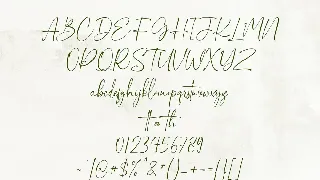 ABCDEFGHIJKLMN
OPQRSTUVWXYZ
abcdefghijklmnopqrstuvwxyz
tt th
0123456789
~`!@#$%^&*()_+-={}[]